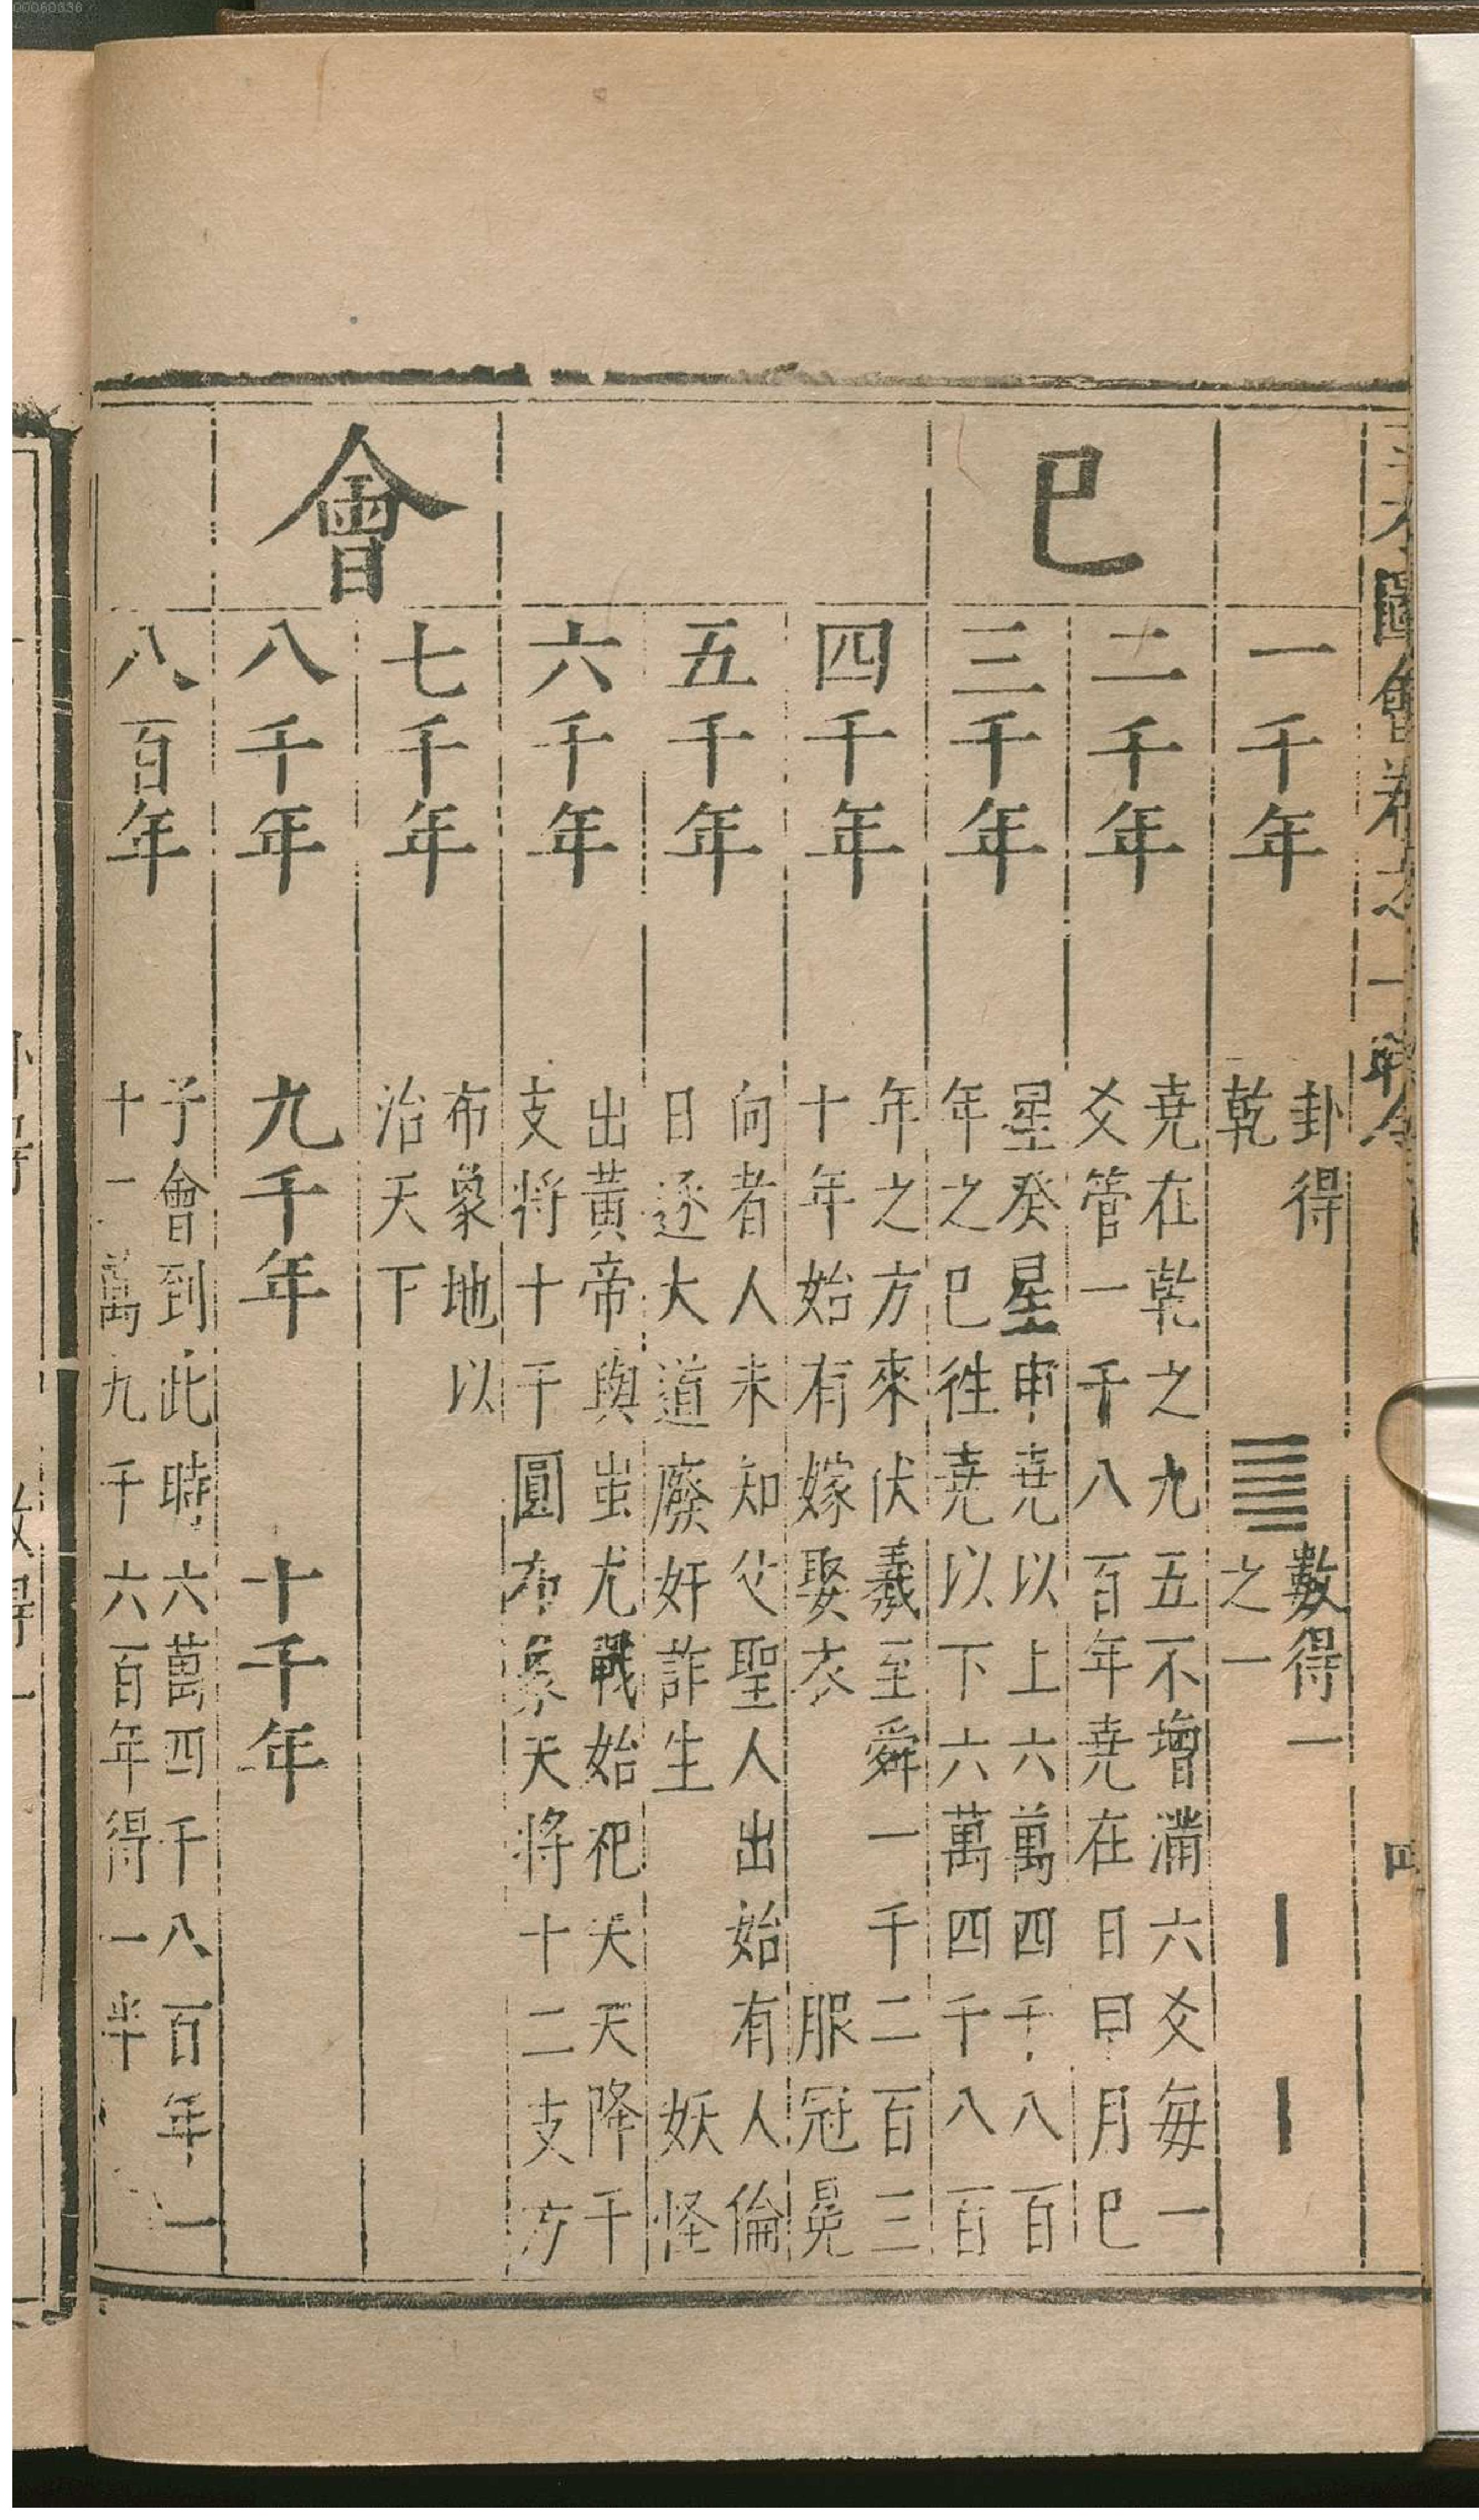 圖會卷之一
四
巳會
一千年
卦得
乾
數得一
之一
二千年
堯在乾之九五不增滿六爻每一
爻管一千八百年堯在日曰月巳
三千年
星癸星申堯以上六萬四千八百
年之巳往堯以下六萬四千八百
四千年
年之方來伏羲至舜一千二百三
十年始有嫁娶衣服冠冕
五千年
向者人未知父聖人出始有人倫
日逐大道廢奸詐生妖怪
六千年
出黃帝與蚩尤戰始祀天天降干
支將十干圓布象天將十二支方
七千年
布象地以
治天下
八千年
九千年
十千年
八百年
予會到此時六萬四千八百年一
十二萬九千六百年得一半
00060336